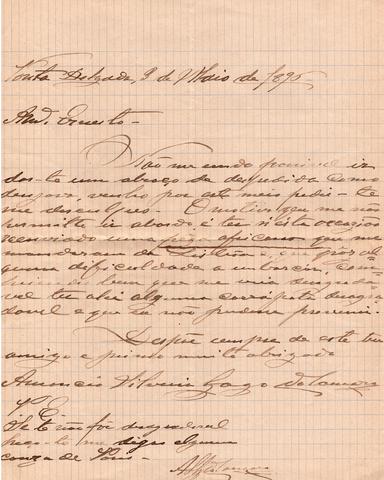 Ponta Delgada, 3 de Maio de 1895
Am.º Ernesto -
Não me sendo possivel ir
dar-te um abraço de despedida como
desejava, venho por este meio pedir-te
me desculpes. O motivo que me não
permitte ir abordo é ter n'esta occasião
reenviado uma africano que me
mandaram de Lisboa e que poz al
guma difficuldade a embarcar, com
bem que me
vel ter ali alguma desagra
davel e que eu não prevenir.
Despõe sempre de este teu
amigo e primo muito obrigado
Amancio Silveira Gago da Camara
P.S.
Se te não fôr desagradavel
peço-te me digas alguma
couza de Paris -